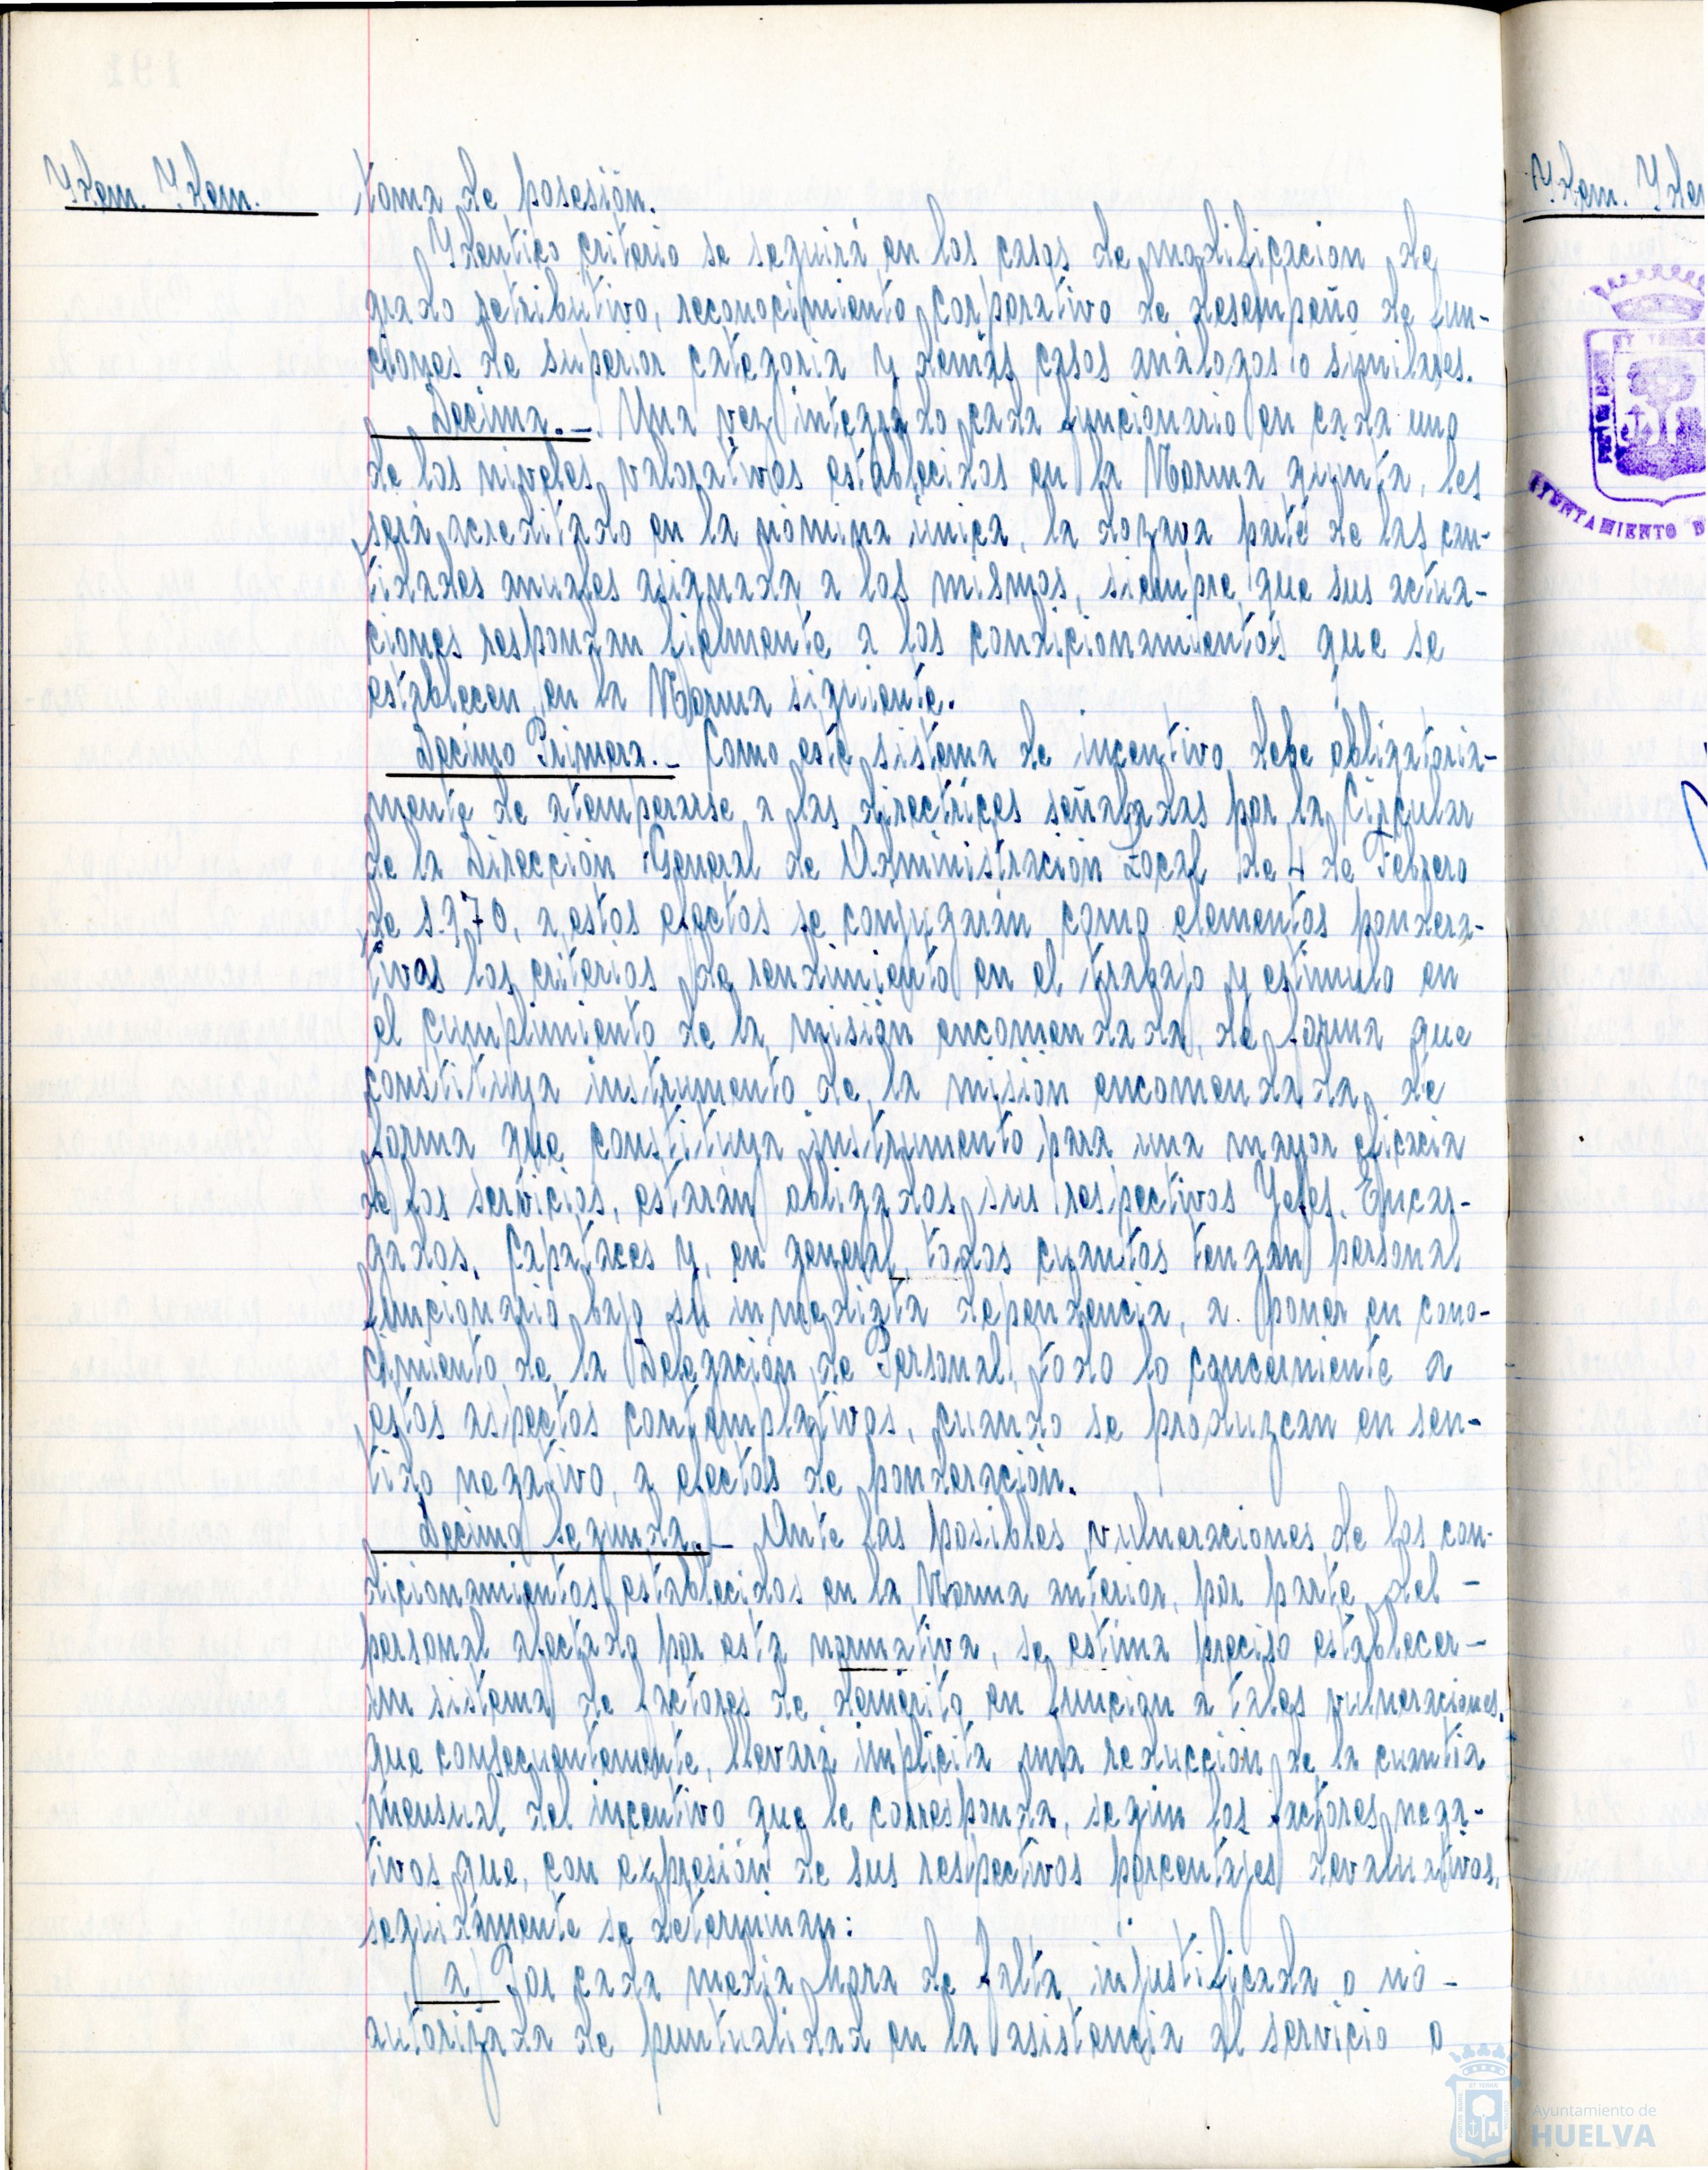 Ydem. Ydem.
toma de posesión.
Ydentico criterio se seguirá en los casos de modificacion de
grado retributivo, reconocimiento corporativo de desempeño de fun-
ciones de superior categoria y demás casos análogos o similares.
Decima.- Una vez integrado cada funcionario en cada uno
de los niveles valorativos establecidos en la Norma quinta, les
será acreditado en la nómina única, la dozava parte de las can-
tidades anuales asignada a los mismos, siempre que sus actua-
ciones respondan fielmente a los condicionamientos que se
establecen en la Norma siguiente.
Decimo Primera.- Como este sistema de incentivo debe obligatoria-
mente de atemperarse a las directrices señaladas por la Circular
de la Dirección General de Administración Local de 4 de Febrero
de 1.970, a estos efectos se conjugarán como elementos pondera-
tivos los criterios de rendimiento en el trabajo y estimulo en
el cumplimiento de la misión encomendada, de forma que
constituya instrumento de la misión encomendada de
forma que constituya instrumento para una mayor eficacia
de los servicios, estarán obligados sus respectivos Yefes, Encar-
gados, Capataces y, en general, todos cuantos tengan personal
funcionario bajo su inmediata dependencia, a poner en cono-
cimiento de la Delegación de Personal, todo lo concerniente a
estos aspectos contemplativos, cuando se produzcan en sen-
tido negativo, a efectos de ponderación.
Decimo Segunda.- Ante las posibles vulneraciones de los con-
dicionamientos establecidos en la Norma anterior, por parte del -
personal afectado por esta normativa, se estima preciso establecer -
un sistema de factores de demerito en funcion a tales vulneraciones,
que consecuentemente, llevará implícita una reducción de la cuantia
mensual del incentivo que le corresponda, según los factores nega-
tivos que, con expresión de sus respectivos porcentajes devaluativos,
seguidamente se determinan:
a) Por cada media hora de falta injustificada o no -
autorizada de puntualidad en la asistencia al servicio o
Ydem.
AYUNTAMIENTO
Ayuntamiento de
HUELVA